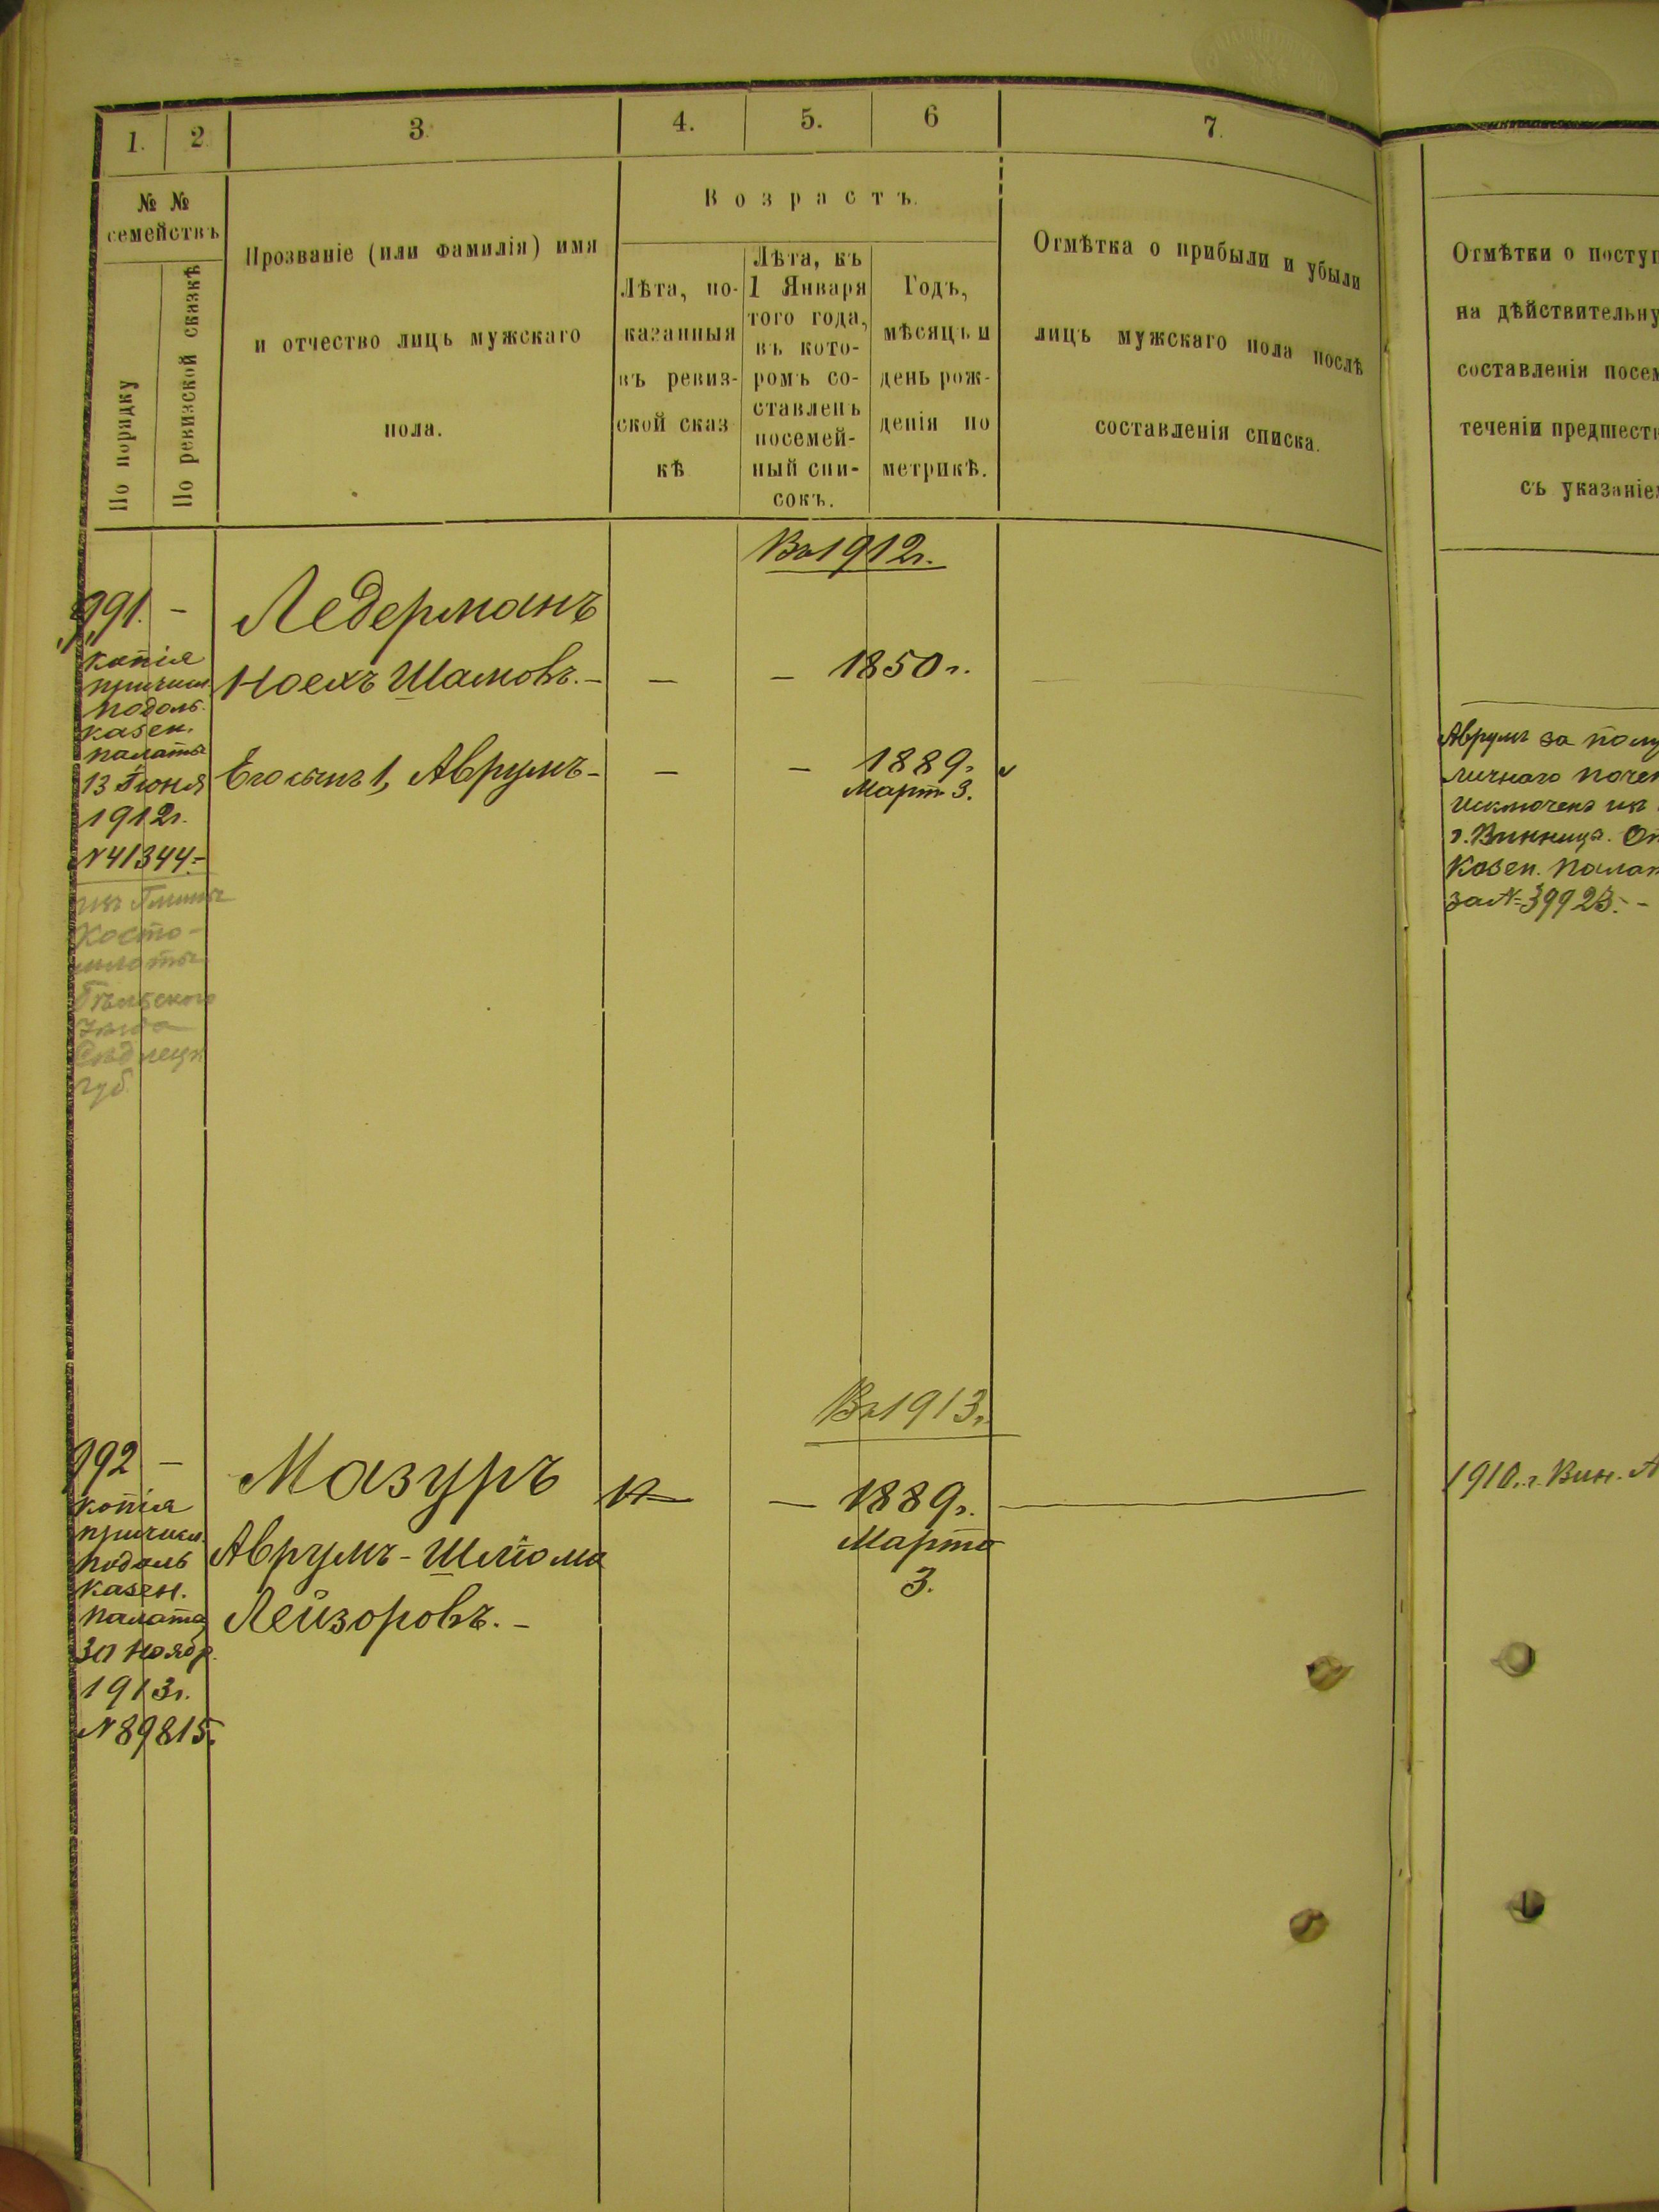 1.
2
3.
4.
5.
6
7.
№ №
семействъ
По порядку
По ревизской сказкѣ
Прозваніе (или фамилія) имя
и отчество лицъ мужскаго
пола.
Возрастъ.
Лѣта, по-
казанныя
въ ревиз-
ской сказ
кѣ
Лѣта, къ
1 Января
того года,
въ кото-
ромъ со-
ставленъ
посемей-
ный спи-
сокъ.
Годъ,
мѣсяцъ и
день рож-
денія по
метрикѣ.
Отмѣтка о прибыли и убыли
лицъ мужскаго пола послѣ
составленія списка.
Въ 1912г.
991. -
копія
причисл.
подоль.
казен.
палаты
13 Іюня
1912г.
N41344.-
изъ Гмины
Косто-
млоты
Бѣльскаго
уѣзда
Сѣдлецк
губ.
Ледерманъ
Ноехъ Шамовъ. -
—
— 1850г.
Его сынъ 1, Аврумъ -
—
— 1889г.
Март 3.
Въ 1913г.
992 —
копія
причисл.
подоль
казен.
палаты
30 Ноябр.
1913г.
N89815.
Мазуръ
Аврумъ-Шліома
Лейзоровъ. -
— 1889г.
Марта
3.
Отмѣтки о посту
на дѣйствительну
составленія посем
теченіи предшест
съ указаніе
Аврумъ за полу
личнаго поче
исключенъ изъ
г. Винница. Оп
Казен. Палат
за N=39923. -
1910.г. Вин.